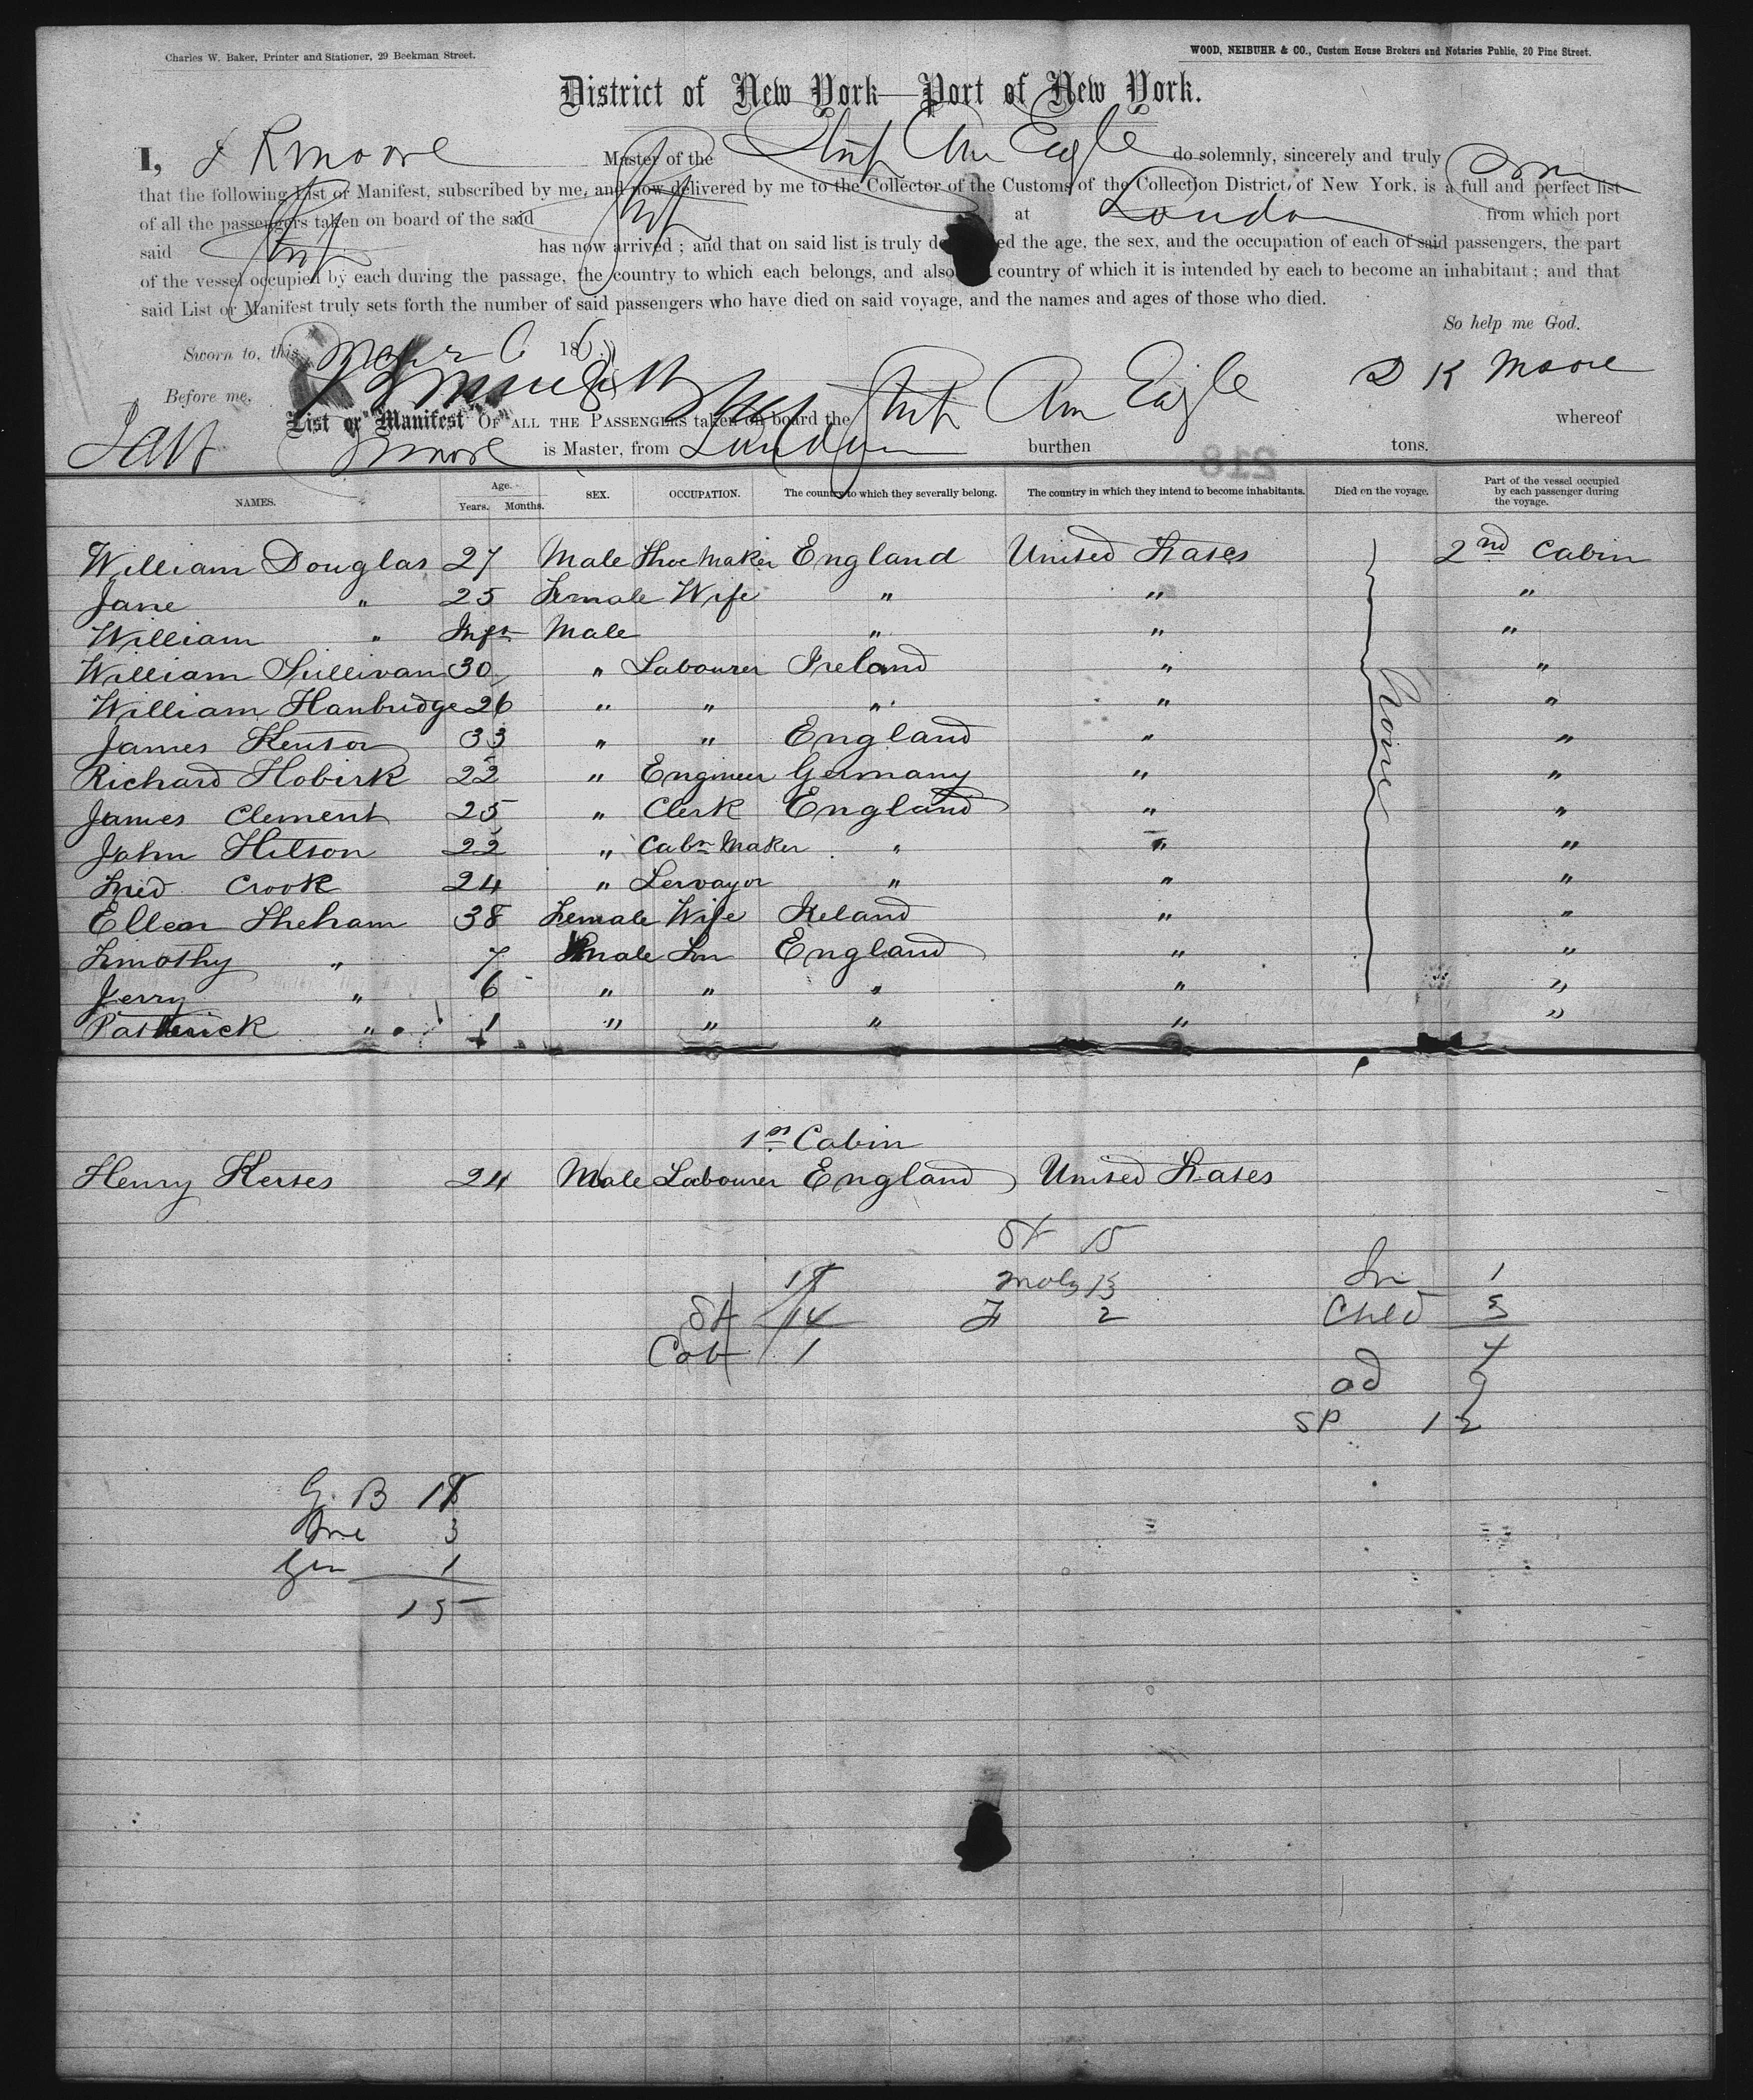 Charles W. Baker, Printer and Stationer, 29 Beekman Street.
WOOD, NEIBUHR & CO., Custom House Brokers and Notaries Public, 20 Pine Street.
District of New York—Port of New York.
I, D K Moore Master of the Ship Am Eagle do solemnly, sincerely and truly
that the following List or Manifest, subscribed by me, and now delivered by me to the Collector of the Customs of the Collection District of New York, is a full and perfect list
of all the passengers taken on board of the said Ship at London from which port
said Ship has now arrived; and that on said list is truly ed the age, the sex, and the occupation of each of said passengers, the part
of the vessel occupied by each during the passage, the country to which each belongs, and also country of which it is intended by each to become an inhabitant; and that
said List or Manifest truly sets forth the number of said passengers who have died on said voyage, and the names and ages of those who died.
So help me God.
Sworn to, this 186
D K Moore
Before me,
List or Manifest OF ALL THE PASSENGERS taken on board the Ship Am Eagle whereof
Moore is Master, from London burthen tons.
218
NAMES. Age. Years. Months. SEX. OCCUPATION. The country to which they severally belong. The country in which they intend to become inhabitants. Died on the voyage. Part of the vessel occupied by each passenger during the voyage.
William Douglas 27 Male Shoe Maker England United States 2nd Cabin
Jane " 25 Female Wife " " "
William " Inft Male " " "
William Sullivan 30 " Labourer Ireland " "
William Hanbridge 26 " " " " "
James Kenson 33 " " England " "
Richard Hobirk 22 " Engineer Germany " "
James Clement 25 " Clerk England " "
John Hilson 22 " Cabn Maker " " "
Fred Crook 24 " Servayor " " "
Ellen Sheham 38 Female Wife Ireland " "
Timothy " 7 Male Son England " "
Jerry " 6 " " " " "
Patterick " 1 " " " " "
None
1st Cabin
Henry Kerses 24 Male Labourer England United States
St 15
Male 13
F 2
St 14
Cab 1
In 1
Child 3
4
ad 9
SP 12
G. B 11
Ire 3
Ger 1
15